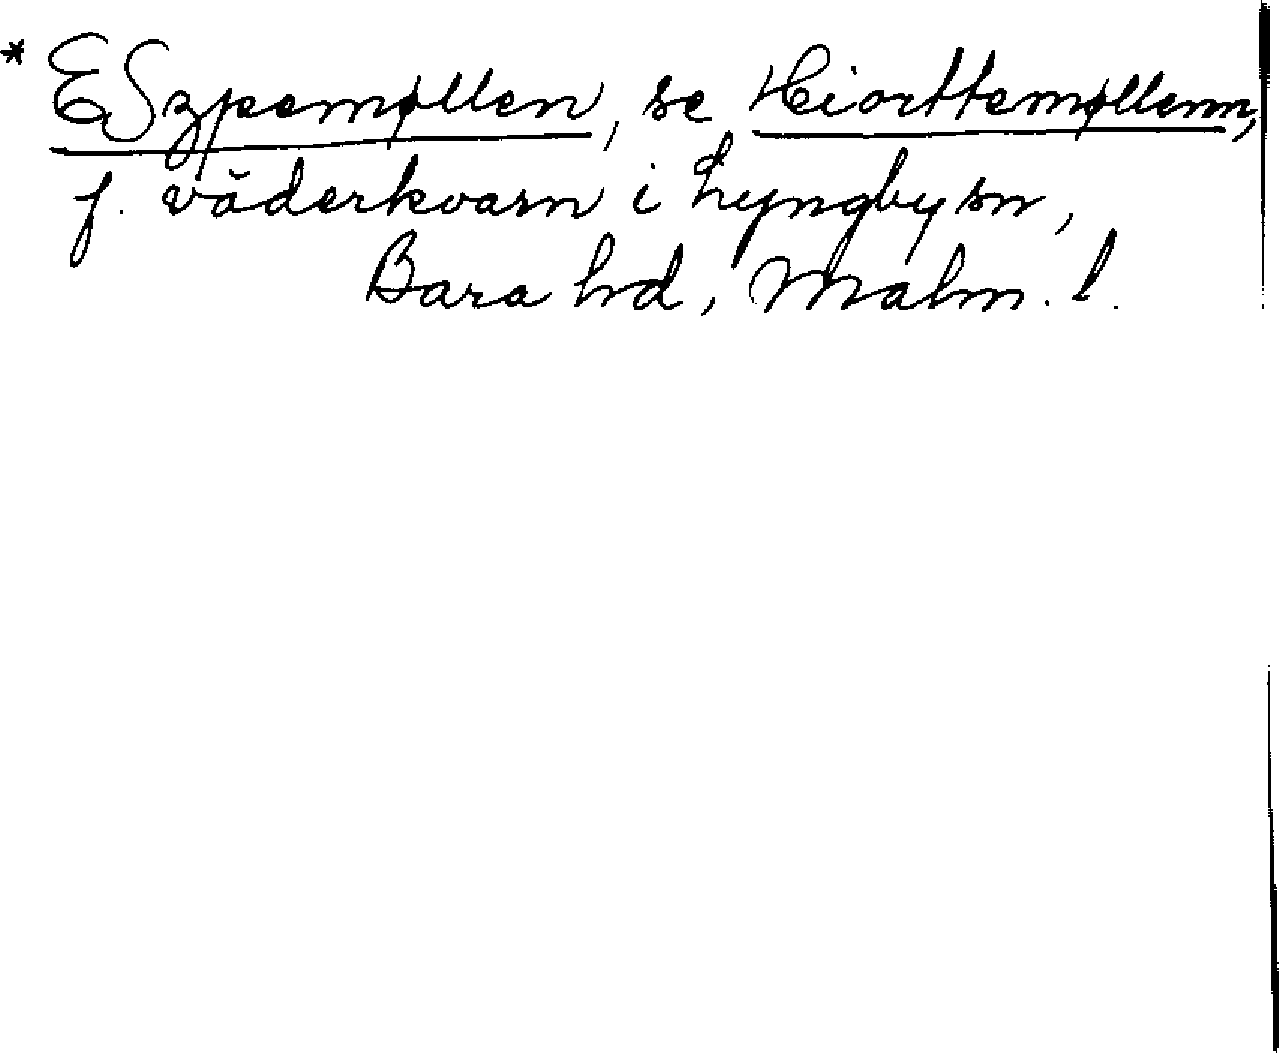 * ESzpemøllen, se Hiorttemøllenn,
f. väderkvarn i Lyngby sn,
Bara hd, Malm. l.